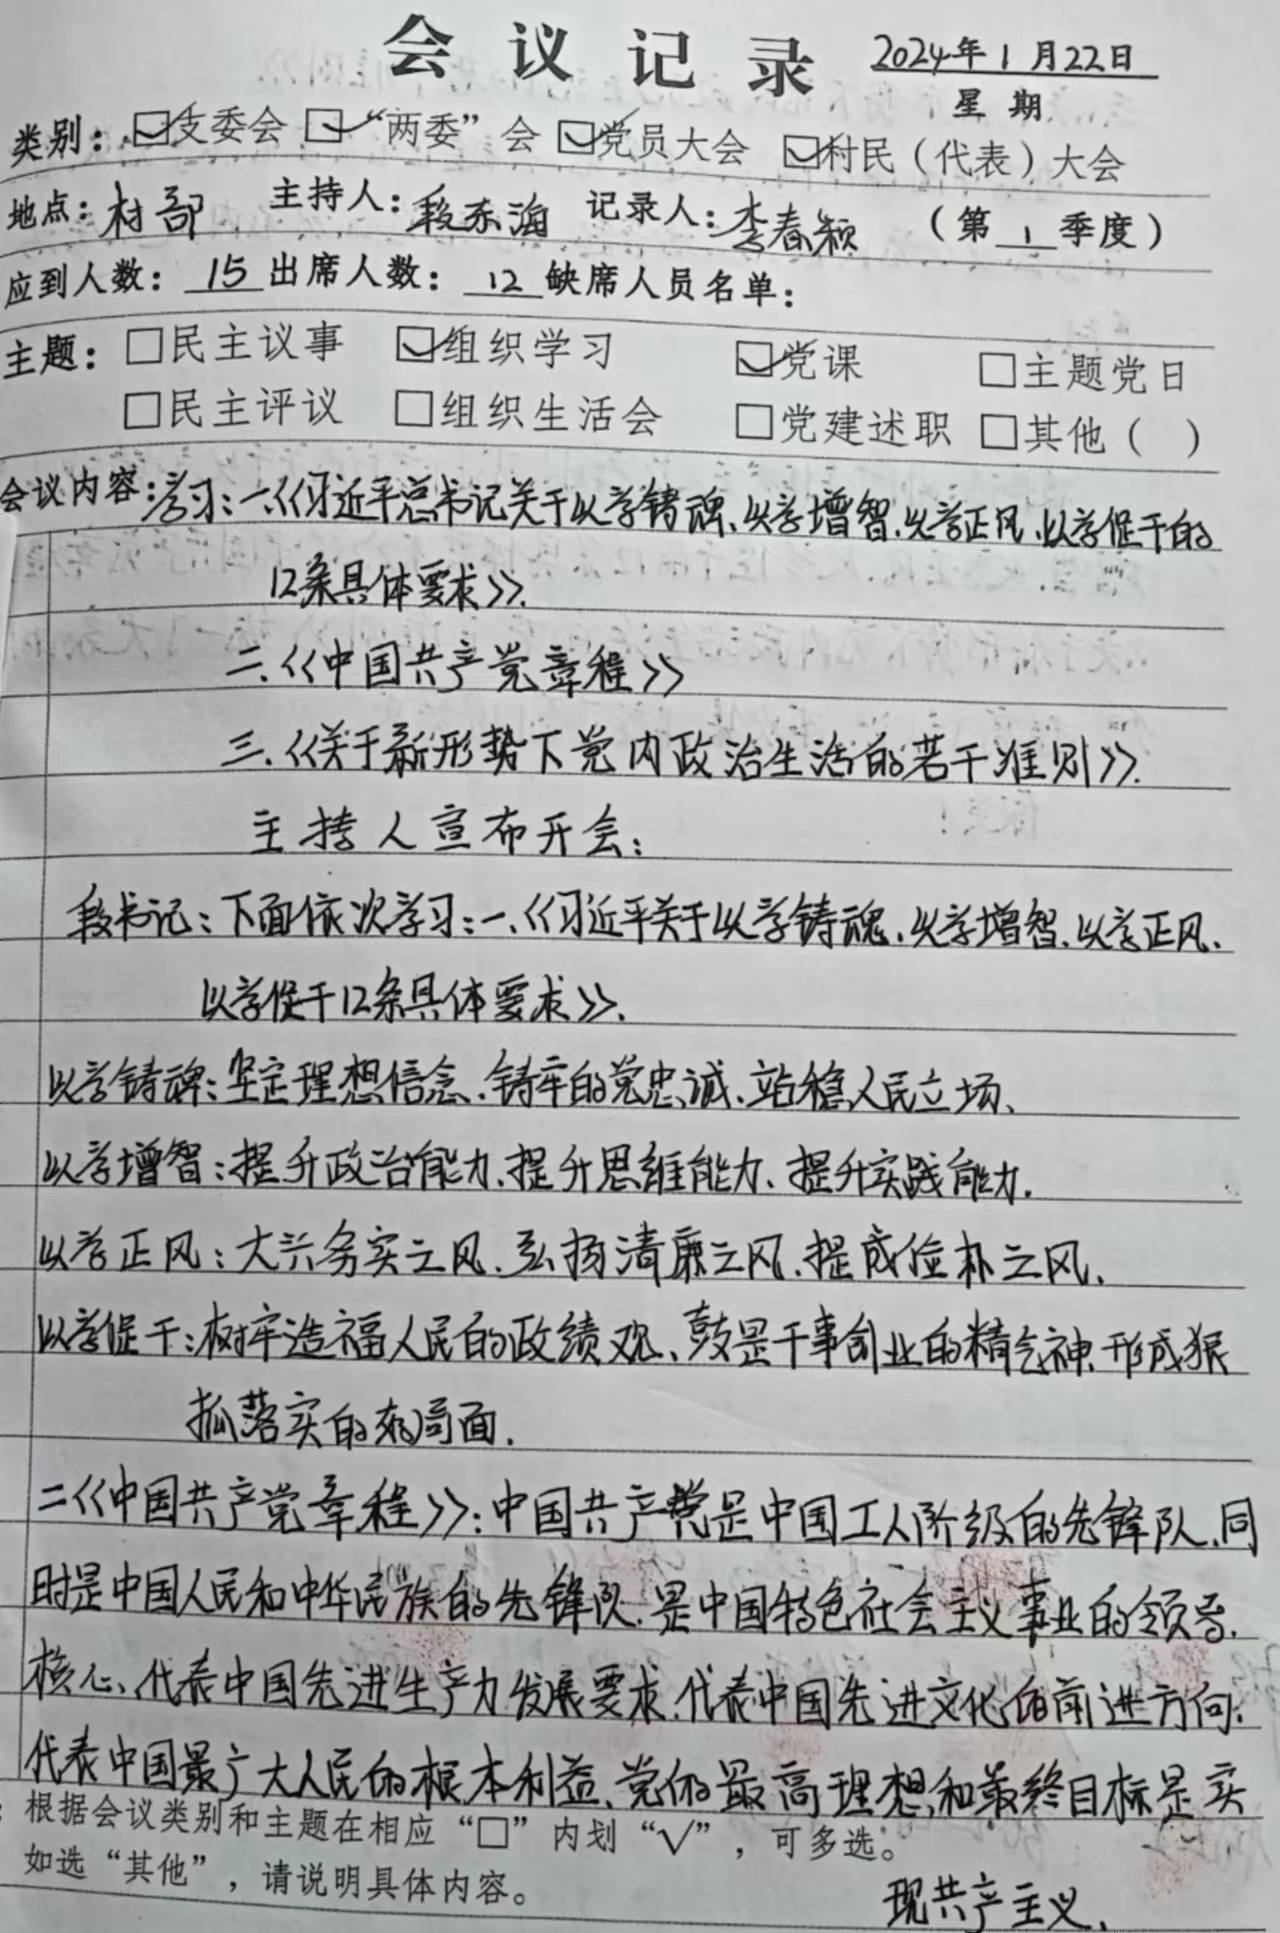 会议记录 2024年1月22日
星期
类别：☑支委会 ☑“两委”会 ☑党员大会 ☑村民（代表）大会
地点：村部 主持人：段东海 记录人：李春颖 （第1季度）
应到人数：15 出席人数：12 缺席人员名单：
主题：□民主议事 ☑组织学习 ☑党课 □主题党日
□民主评议 □组织生活会 □党建述职 □其他（ ）
会议内容：学习：一、《习近平总书记关于以学铸魂、以学增智、以学正风、以学促干的
12条具体要求》.
二、《中国共产党章程》
三、《关于新形势下党内政治生活的若干准则》.
主持人宣布开会：
段书记：下面依次学习：一、《习近平关于以学铸魂、以学增智、以学正风、
以学促干12条具体要求》.
以学铸魂：坚定理想信念、铸牢的党忠诚、站稳人民立场、
以学增智：提升政治能力、提升思维能力、提升实践能力.
以学正风：大兴务实之风、弘扬清廉之风、提成俭朴之风、
以学促干：树牢造福人民的政绩观、鼓是干事创业的精气神、形成狠
抓落实的好局面.
二《中国共产党章程》：中国共产党是中国工人阶级的先锋队、同
时是中国人民和中华民族的先锋队、是中国特色社会主义事业的领导、
核心、代表中国先进生产力发展要求、代表中国先进文化的前进方向、
代表中国最广大人民的根本利益、党的最高理想和最终目标是实
：根据会议类别和主题在相应“□”内划“√”，可多选。
如选“其他”，请说明具体内容。
现共产主义、